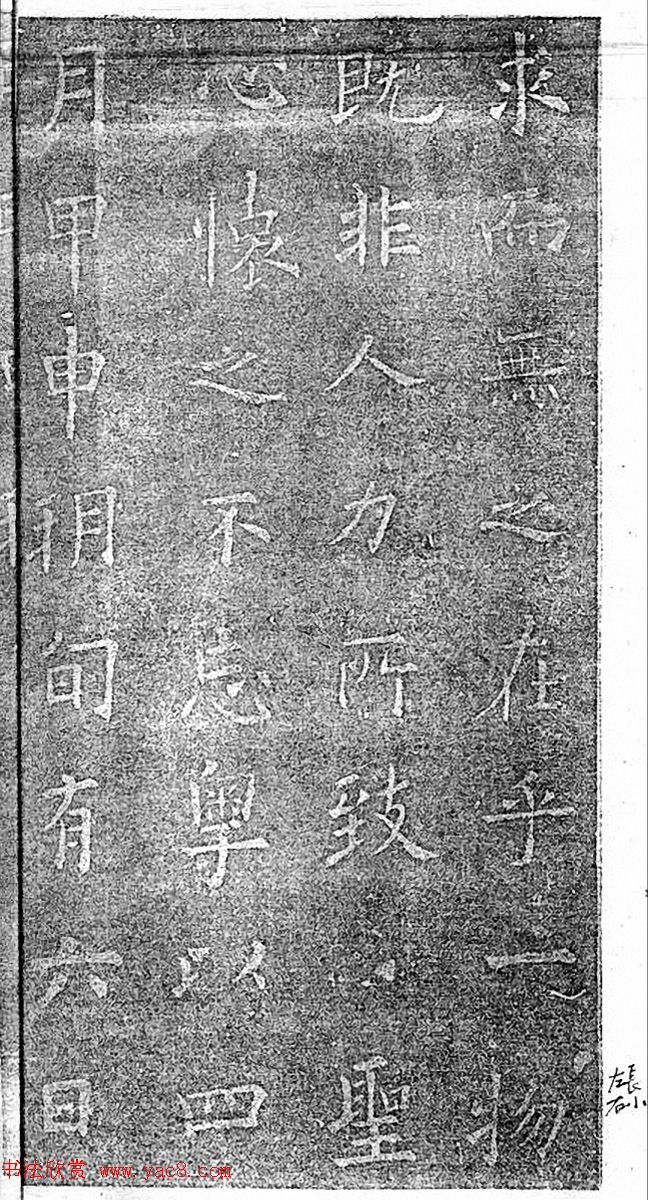 求而無之在乎一物
既非人力所致聖
心懷之不忘粵以四
月甲申朔旬有六日
书法欣赏 www.yac8.com